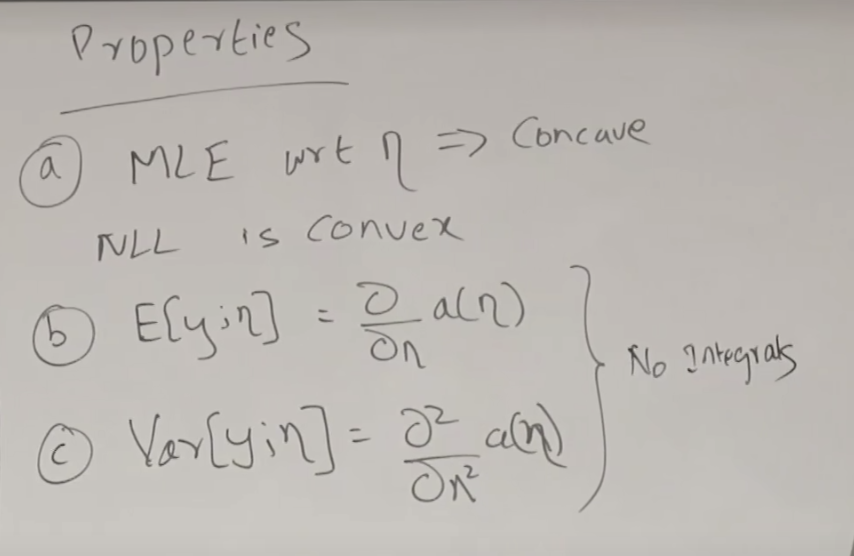 Properties
(a) MLE wrt η => Concave
NLL is convex
(b) E[y;η] = ∂/∂η a(η)
(c) Var[y;η] = ∂²/∂η² a(η)
} No Integrals